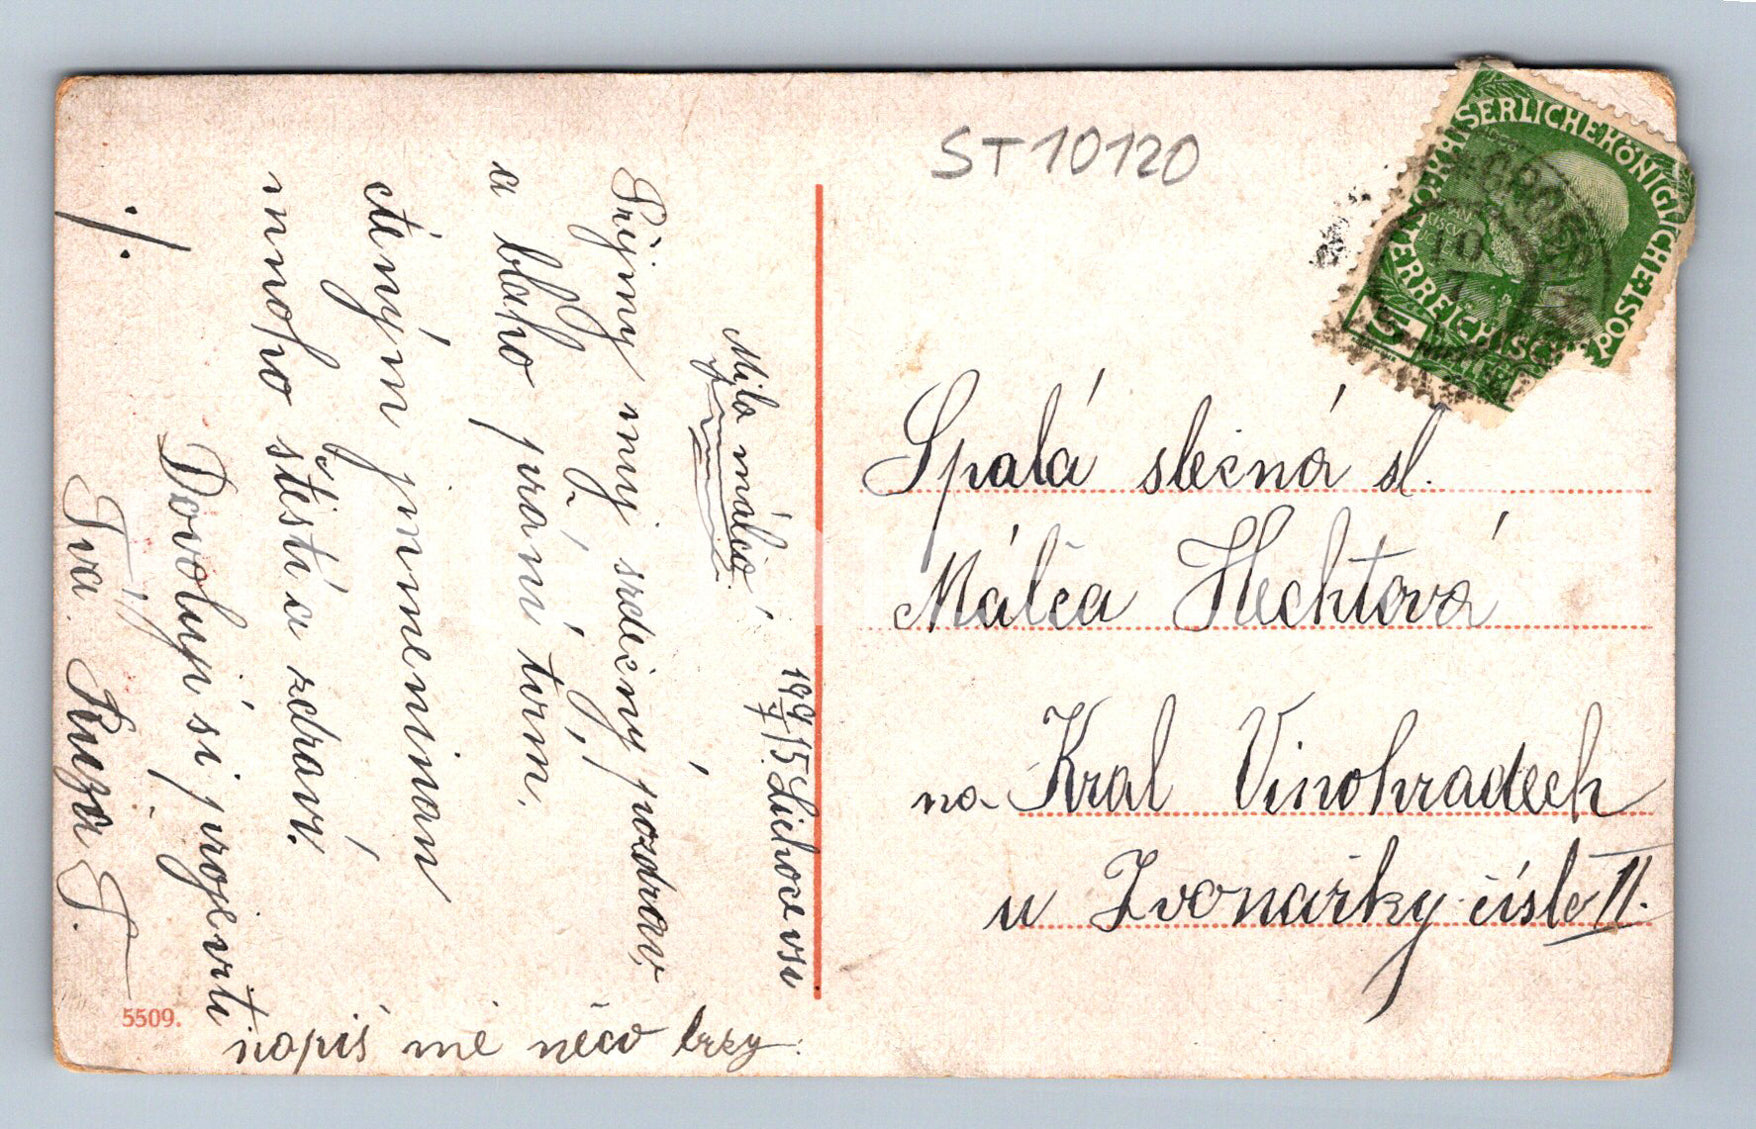 ST10120
KAISERLICHE KÖNIGLICHE
ÖSTERREICHISCHE
5
10
Spalá slečná sl.
Málča Hechtová
na Kral Vinohradech
u Zvonařky čisle 11.
199/7 15 Lichoceves
Milá málčo
Prijmy muj srdečny pozdrav
a blaho práni tvím.
ctěným jmmeninan
mnoho štěstí a zdraví.
Dovoluji si projeviti
Tva Ruza T.
napiš mě něco brzy.
5509.